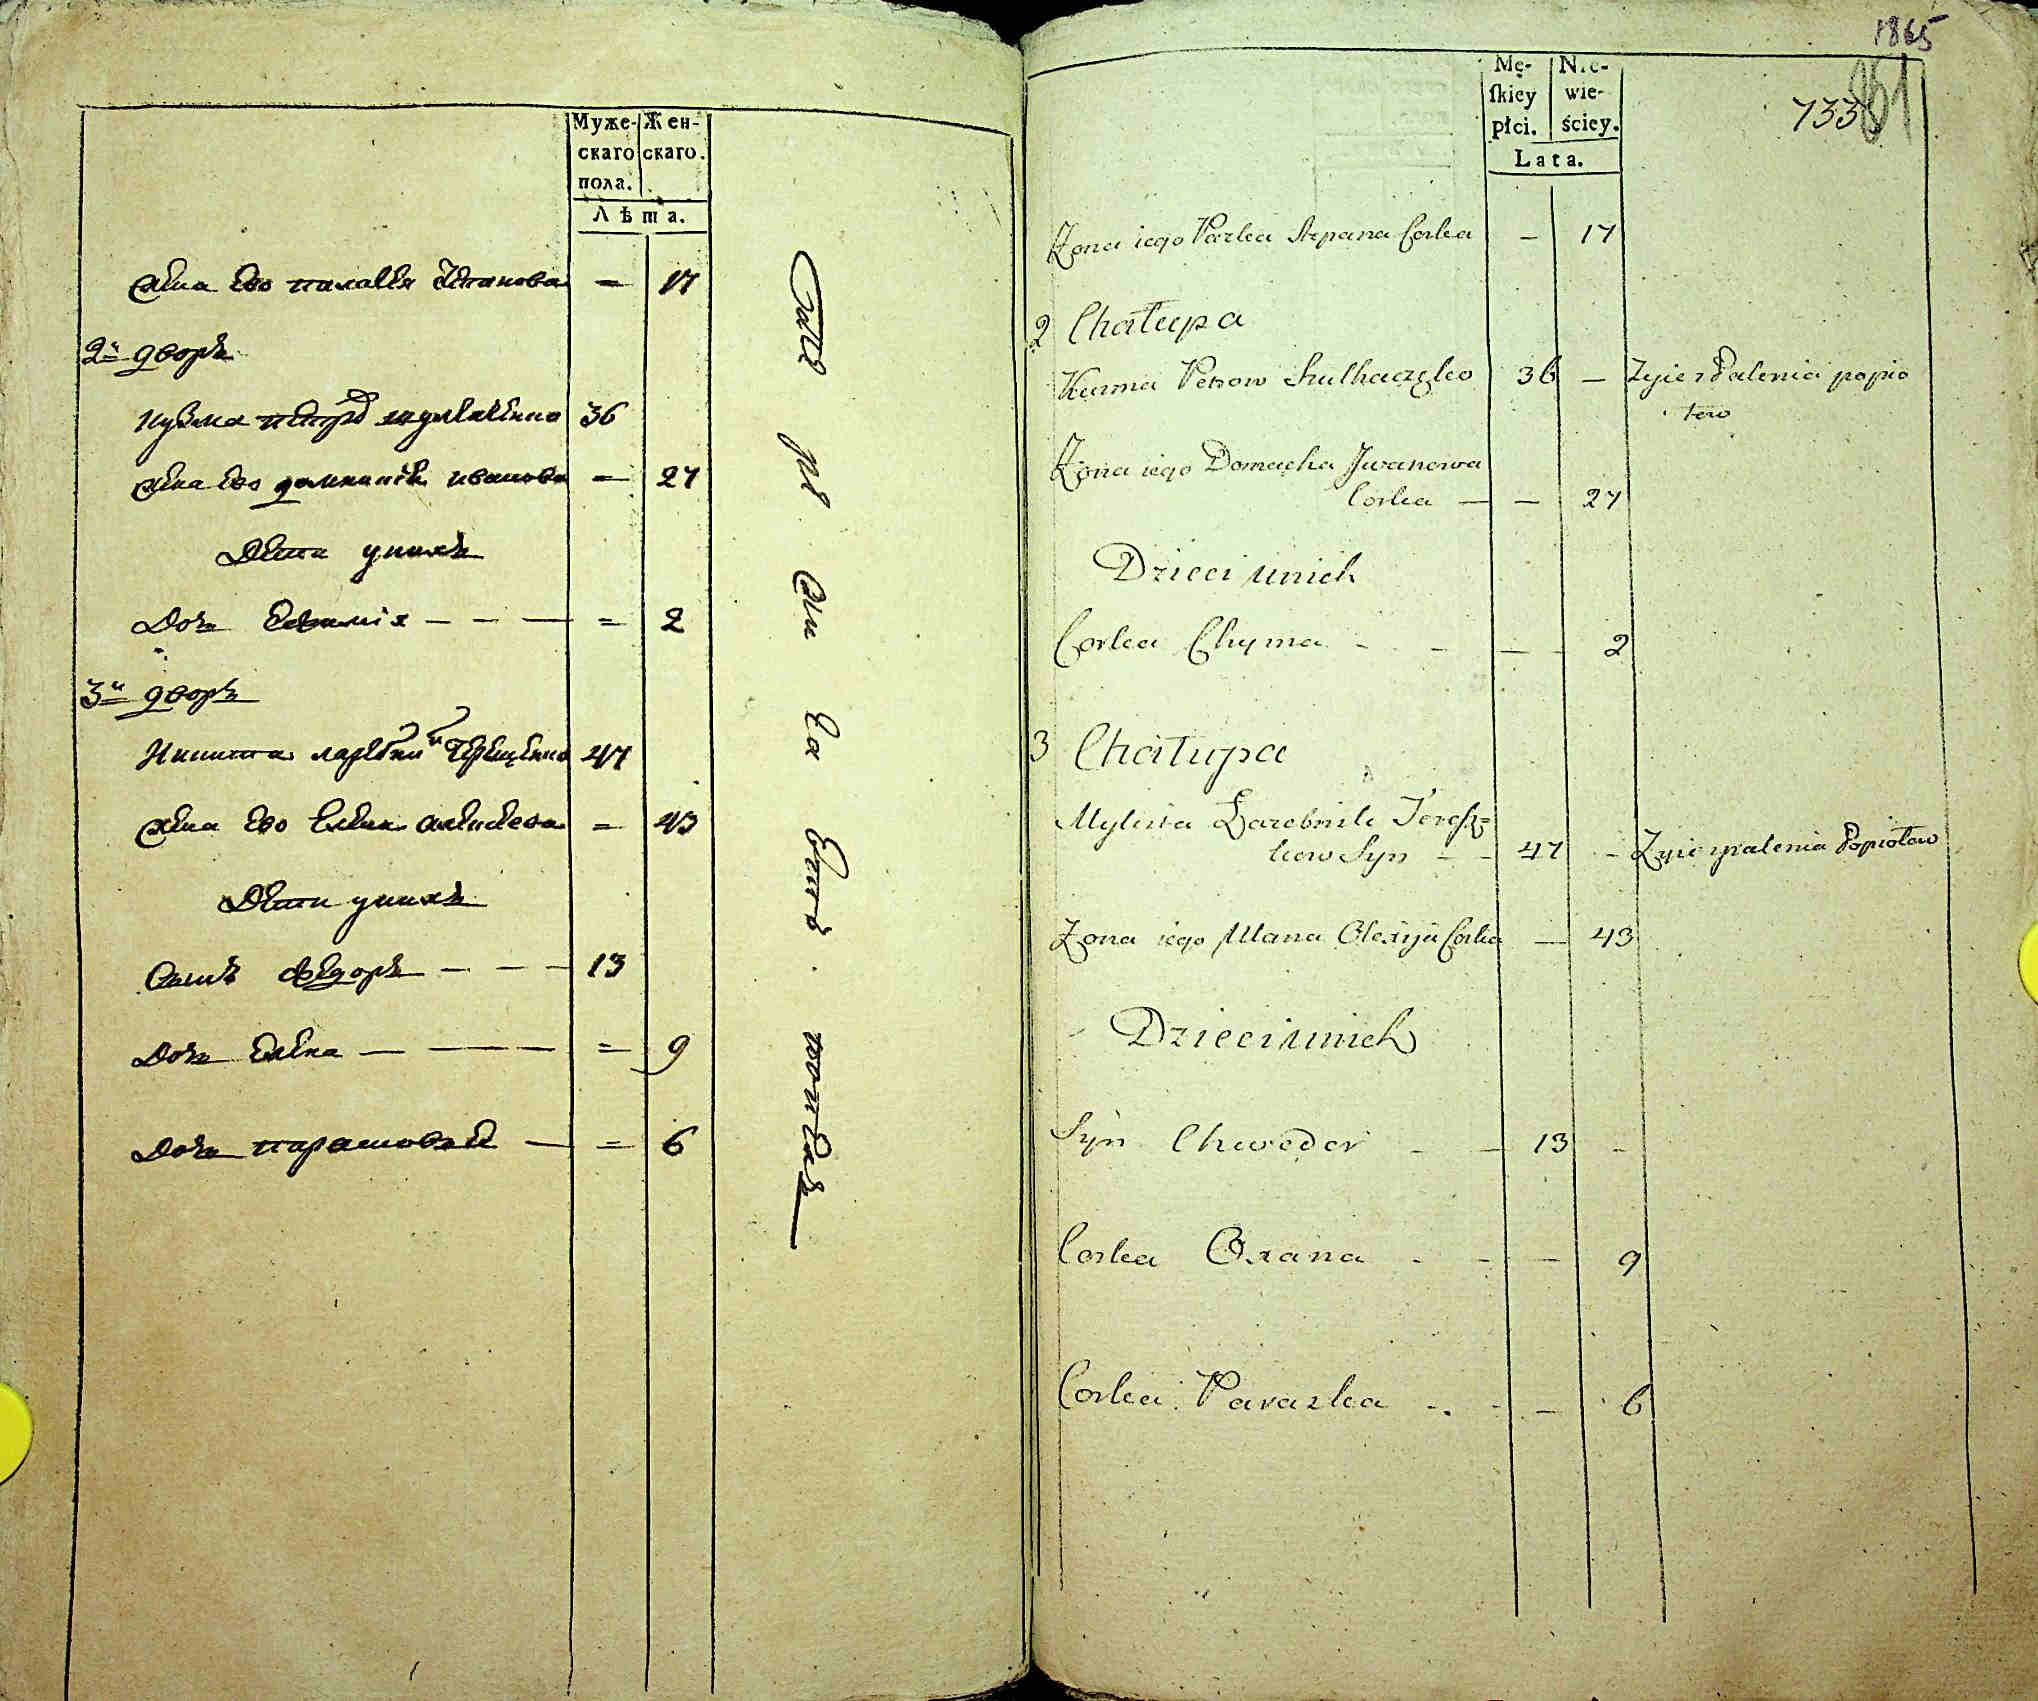 Муже- Жен-
скаго скаго.
пола.
Лѣта.
жена ево палазея степанова — 17
2й дворъ
кузма петровъ шулкаченко 36
жена ево домникия иванова — 27
Дети уних
Дочь Евфимія — — — = 2
3й дворъ
Никита Терещенко 47
жена ево Алексеева = 43
Дети уних
Сынъ Федоръ — — — 13
Дочь Елена — — — = 9
Дочь парасковея — = 6
1865
Mę- Nie-
skiey wie-
płci. ściey.
Lata.
733
Zona iego Pazka Stepana Corka — 17
2 Chałupa
Kuzma Petrow Szulhaczęko 36 — Zyie z Palenia popio
łow
Zona iego Domacha Jwanowa
Corka — — 27
Dzieci unich
Corka Chyma - - — 2
3 Chałupa
Mykita Łazebnik Teresz=
kow Syn - - 47 - Zyie z palenia Popiołow
Zona iego Ulana Olexija Corka — 43
Dzieci unich
Syn Chwedor - - 13 -
Corka Oxana - - — 9
Corka Paraska - - — 6